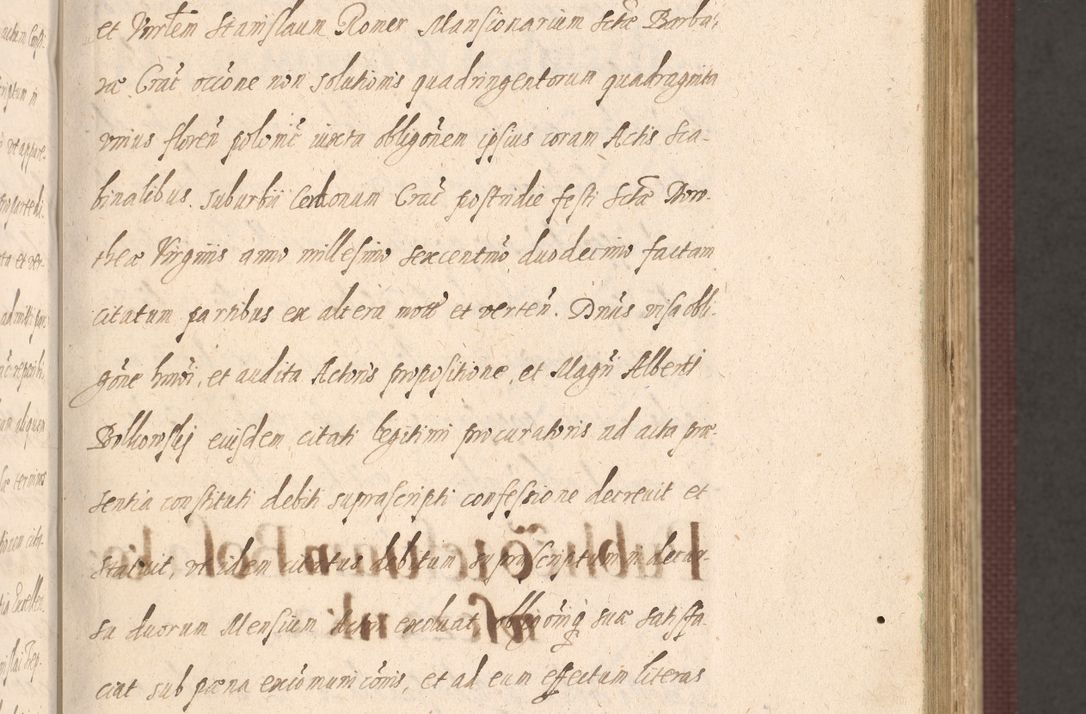 et Vnrłem Stanislaum Romer Mansionarium Sctæ Barba-
ræ Crac̃ occõne non solutionis quadringentorum quadraginta
vnius floreñ polonic̃ iuxta obligõnem ipsius coram Actis Sca-
binalibus suburbii Cerdonum Crac̃ postridie festi Sctæ Doro-
theæ Virginis anno millesimo sexcentmo duodecimo factam
citatum partibus ex altera mota et verteñ. Dnũs visa obli-
gõne hmõi, et audita Actoris propositione, et Magri Alberti
eiusdem citati legitimi procuratoris ad acta præ-
sentia constituti debiti suprascripti confessione decreuit et
statuit, vt idem citatus debitum suprascriptum in decur-
sa duorum Mensium exoluat, suæ satisfa-
ciat sub pæna excõmunicõnis, et ad eum effectum literas